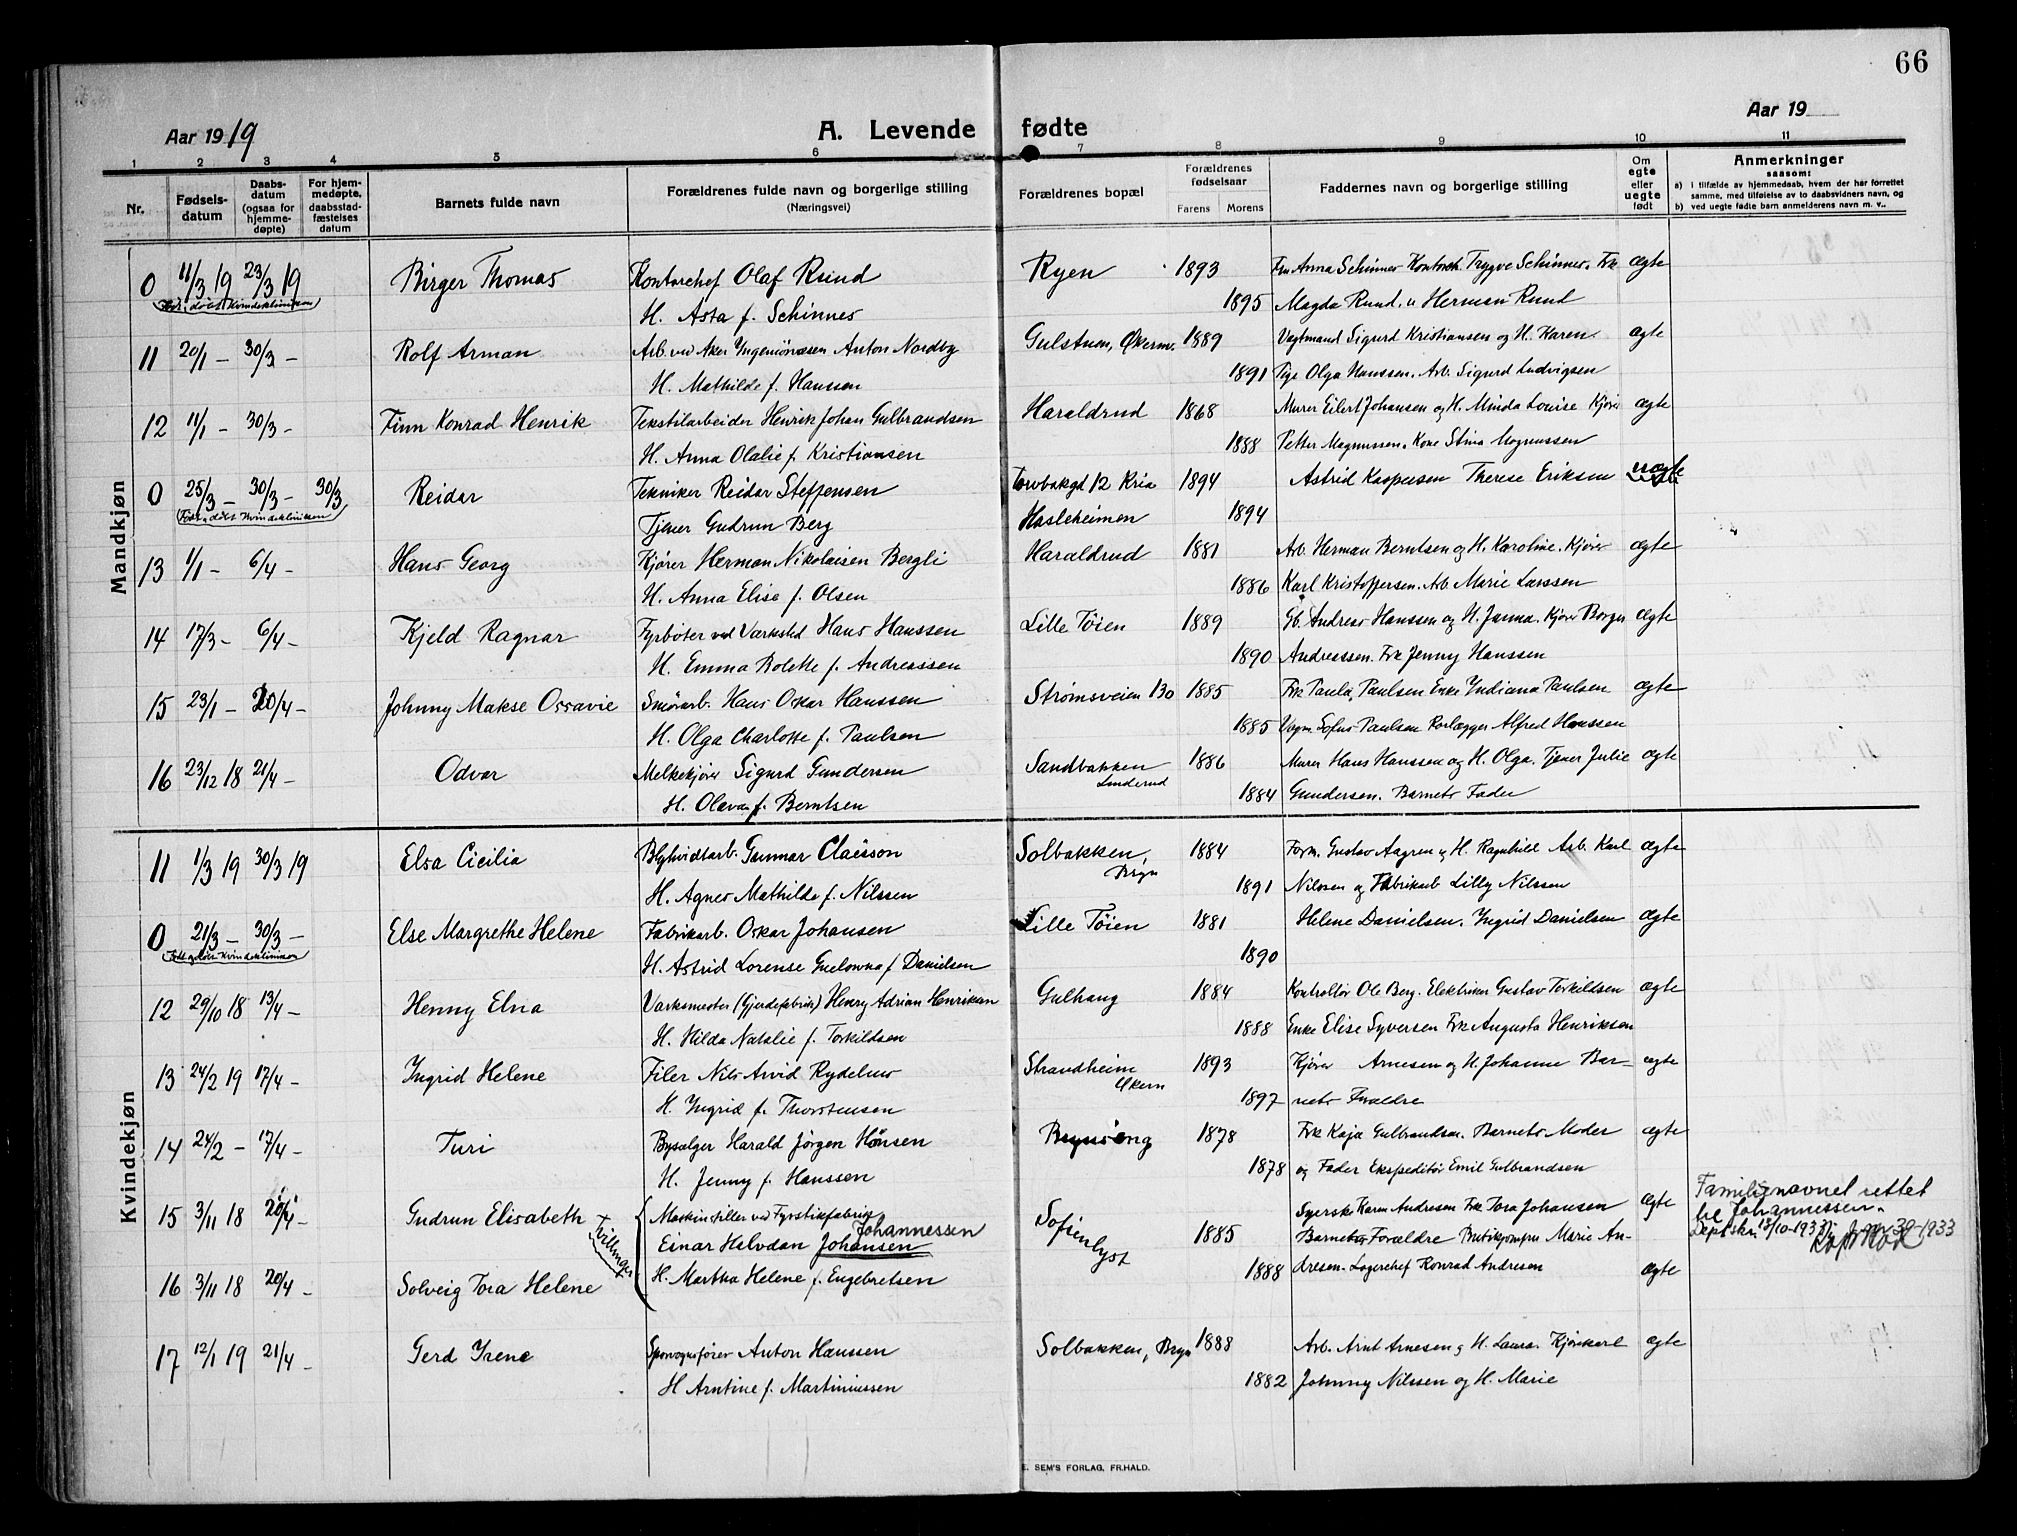 66
Aar 1919
A. Levende fødte
Aar 19
1 2 3 4 5 6 7 8 9 10 11
Nr.
Fødsels-datum
Daabs-datum (ogsaa for hjemme-døpte)
For hjem-medøpte, daabsstad-fæstelses datum
Barnets fulde navn
Forældrenes fulde navn og borgerlige stilling
(Næringsvei)
Forældrenes bopæl
Forældrenes fødselsaar
Farens Morens
Faddernes navn og borgerlige stilling
Om egte eller uegte født
Anmerkninger
saasom:
a) i tilfælde av hjemmedaab, hvem der har forrettet
samme, med tilføielse av to daabsvidners navn, og
b) ved uegte fødte barn anmelderens navn m. v..
Mandkjøn
0 11/3 19 23/3 19 Birger Thomas Kontorchef Olaf Rund Ryen 1893 Fru Anna Schinnes. Kontorch. Trygve Schinnes. Frk ægte
Født og døbt Kvindeklinikken H. Asta f. Schinnes 1895 Magda Rund. Herman Rund
11 20/1 – 30/3 – Rolf Arman Arb. ved Aker Ingeniørvæsen Anton Nordby Gulstuen, Økernv. 1889 Vegtmand Sigurd Kristiansen og H. Karen. ægte
H. Mathilde f. Hansen 1891 Pige Olga Hanssen. Arb. Sigurd Ludvigsen
12 11/1 – 30/3 – Finn Konrad Henrik Tekstilarbeider Henrik Johan Gulbrandsen Haraldrud 1868 Murer Eilert Johansen og H. Minda Louise Kjører ægte
H. Anna Olalie f. Kristiansen 1888 Petter Magnussen. Kone Stina Magnussen
0 25/3 – 30/3 – 30/3 Reidar Tekniker Reidar Steffensen Torvbakgd 12 Kria 1894 Astrid Kaspersen Therese Eriksen uægte
Født og døbt Kvindeklinikken Tjener Gudrun Berg Hasleheimen 1894
13 1/1 – 6/4 – Hans Georg Kjører Herman Nikolaisen Bergli Haraldrud 1881 Arb. Herman Berntsen og H. Karoline. Kjører ægte
H. Anna Elise f. Olsen 1886 Karl Kristoffersen. Arb. Marie Larssen
14 17/3 – 6/4 – Kjeld Ragnar Fyrbøter ved Værksted Hans Hanssen Lille Tøien 1889 Gb. Andreas Hanssen og H. Janna. Kjører Borger ægte
H. Emma Bolette f. Andreassen 1890 Andreassen. Frk Jenny Hanssen
15 23/1 – 20/4 – Johnny Makse Ossavie Smørarb. Hans Oskar Hanssen Strømsveien 130 1885 Frk Paula Paulsen Enke Indiana Paulsen ægte
H. Olga Charlotte f. Paulsen 1885 Vogm. Sofus Paulsen Rørlægger Alfred Hanssen
16 23/12 18 21/4 – Odvar Melkekjører Sigurd Gundersen Sandbakken 1886 Murer Hans Hanssen og H. Olga. Tjener Julie ægte
H. Oleva f. Berntsen Linderud 1884 Gundersen. Barnets Fader
Kvindekjøn
11 1/3 19 30/3 19 Elsa Cicilia Blyhvidtarb. Gunnar Claesson Solbakken, 1884 Form. Gustav Aagren og H. Ragnhild Arb. Karl ægte
H. Agnes Mathilde f. Nilssen Bryn 1891 Nilssen og Fabrikarb Lilly Nilssen
0 21/3 – 30/3 – Else Margrethe Helene Fabrikarb. Oskar Johansen Lille Tøien 1881 Helene Danielsen. Ingrid Danielsen ægte
Født og døbt Kvindeklinikken H. Astrid Lorense Guelowna f Danielsen 1890
12 29/10 18 13/4 – Henny Elna Værksmester (Gjerdefabrik) Henry Adrian Henriksen Gulhaug 1884 Kontrollør Ole Berg. Elektriker Gustav Torkildsen ægte
H. Hilda Natalie f. Torkildsen 1888 Enke Elise Syversen Frk Augusta Henriksen
13 24/2 19 17/4 – Ingrid Helene Filer Nils Arvid Rydelius Strandheim 1893 Kjører Arnesen og H. Johanne Bar– ægte
H. Ingrid f. Thorstensen Økern 1897 nets Forældre
14 24/2 – 17/4 – Turi Bysælger Harald Jørgen Hansen Brynseng 1878 Frk Kaja Gulbrandsen. Barnets Moder ægte
H. Jenny f. Hanssen 1878 og Fader Ekspeditør Emil Gulbrandsen
15 3/11 18 20/4 – Gudrun Elisabeth Maskinstiller ved Fyrstikfabrik Sofienlyst Syerske Karen Andresen Frk Tora Johansen ægte Familienavnet rettet
Tvillinger Einar Halvdan Johansen Johannessen 1885 Barnets Forældre Butikjomfru Marie An– til Johannessen.
16 3/11 18 20/4 – Solveig Tora Helene H. Martha Helene f. Engebretsen 1888 dresen. Lagerchef Konrad Andresen ægte Dept.skr. 13/10-1933
17 12/1 19 21/4 – Gerd Irene Sporvognsfører Anton Hanssen Solbakken, Bryn 1888 Arb. Arnt Arnesen og H. Laura. Kjørekarl ægte
H Arntine f. Martiniussen 1882 Johnny Nilssen og H. Marie
E. SEM'S FORLAG, FR.HALD.